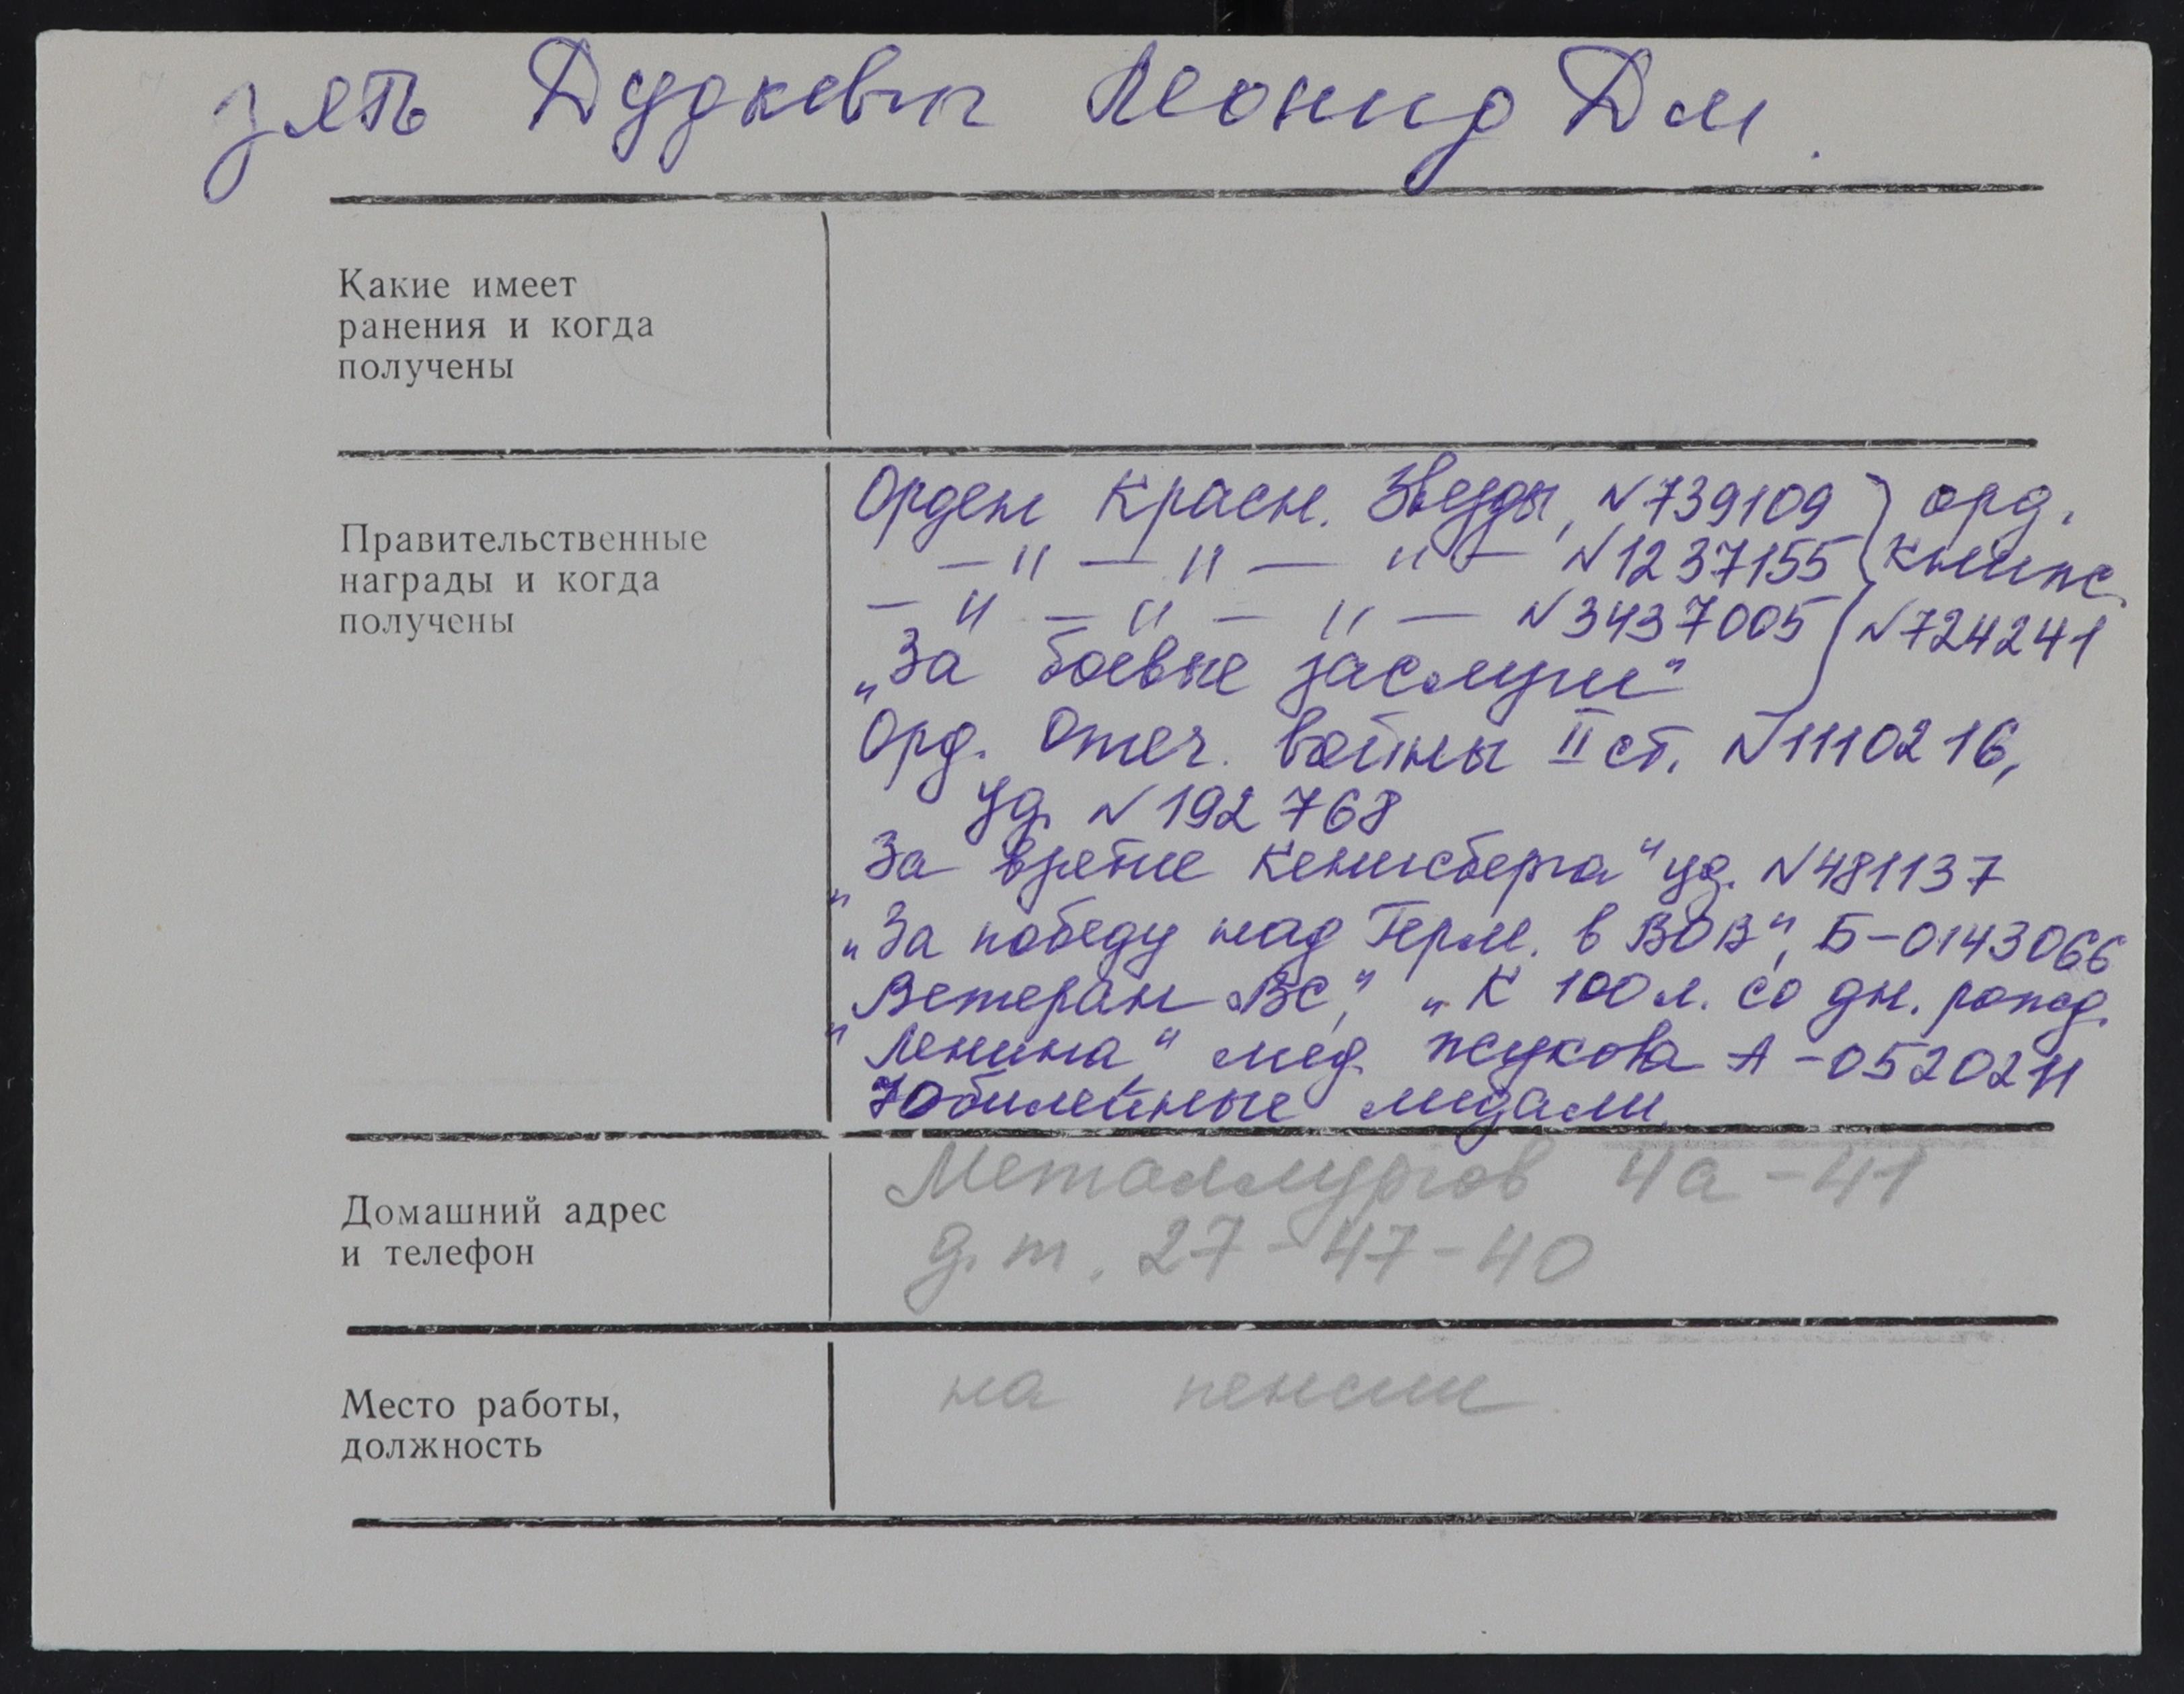 зять Дудкевич Леонид Дм.
Какие имеет
ранения и когда
получены
Правительственные
награды и когда
получены
Орден Красн. Звезды, N739109 } орд.
—"—"—"— N1237155 книжк.
—"—"—"— N3437005 N724241
„За боевые заслуги"
Орд. Отеч. войны II ст. N1110216,
уд. N192768
„За взятие Кенигсберга" уд. N481137
„За победу над Герм. в ВОВ", Б-0143066
„Ветеран ВС", „К 100 л. со дн. рожд.
Ленина," мед. Жукова А-0520211
Юбилейные медали.
Домашний адрес
и телефон
Металлургов 4а-41
д.т. 27-47-40
Место работы,
должность
на пенсии